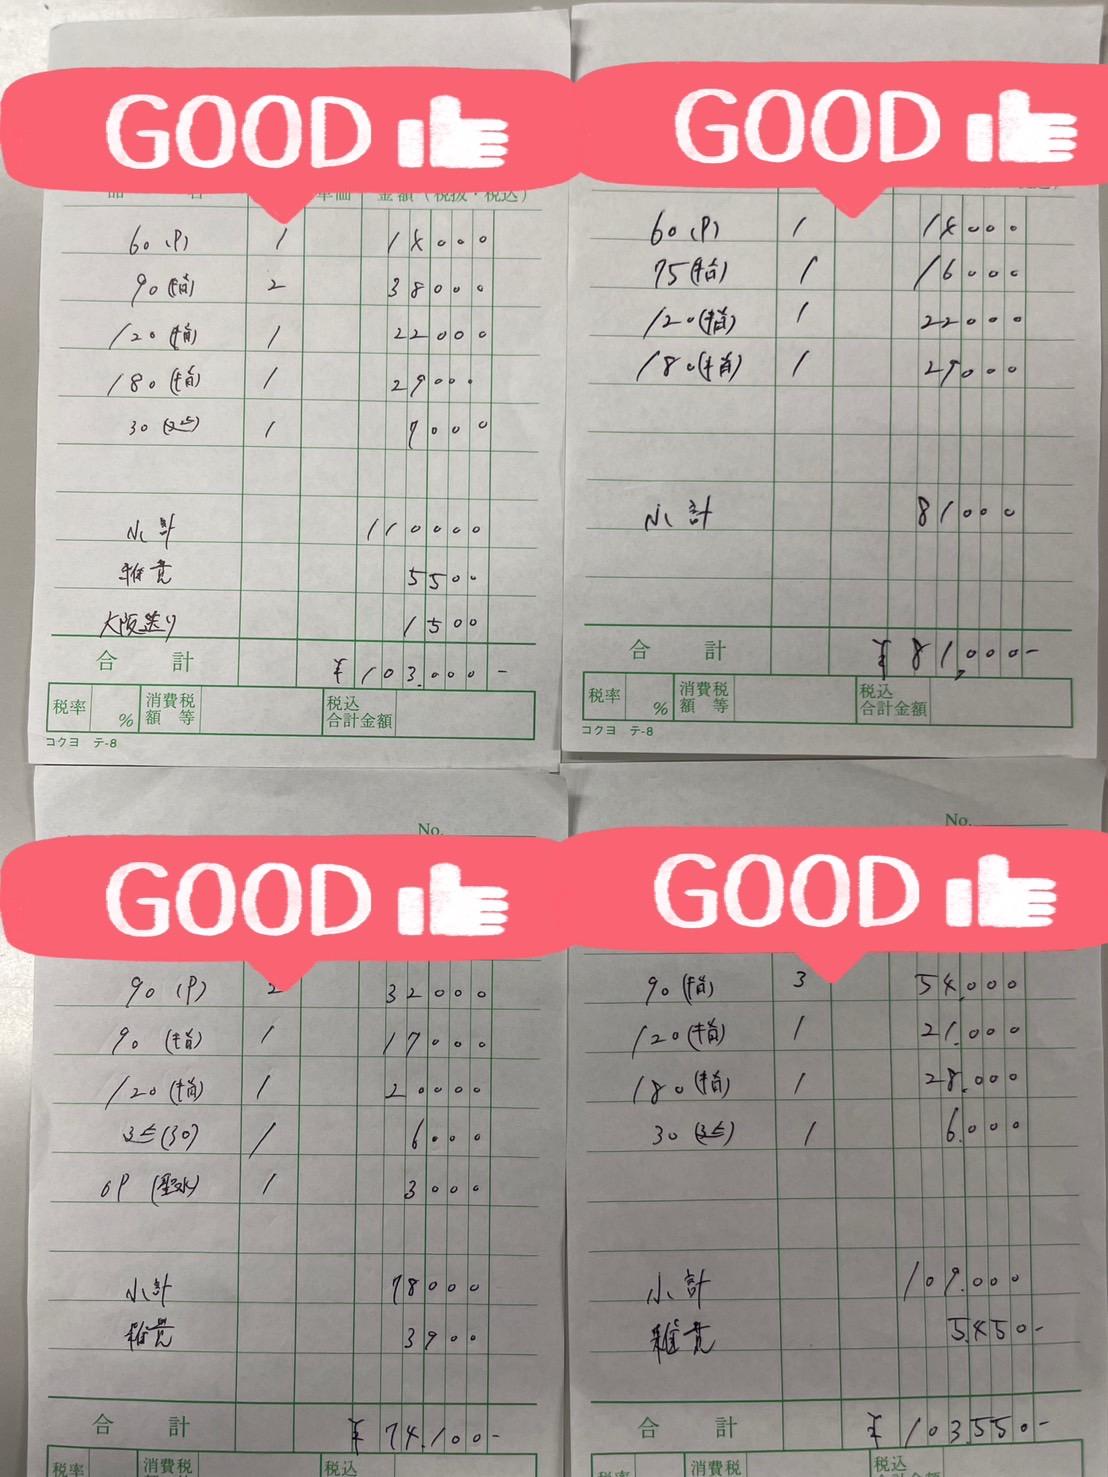 GOOD
品 名 単価 金額(税抜・税込)
60(P) 1 14000
90(指) 2 38000
120(指) 1 22000
180(指) 1 29000
30(延) 1 7000
小計 110000
雑費 5500
大阪送り 1500
合 計 ¥103.000-
税率 % 消費税額等 税込合計金額
コクヨ テ-8
GOOD
60(P) 1 14000
75(指) 1 16000
120(指) 1 22000
180(指) 1 29000
小計 81000
合 計 ¥81,000-
税率 % 消費税額等 税込合計金額
コクヨ テ-8
No.
GOOD
90(P) 2 32000
90(指) 1 17000
120(指) 1 20000
延(30) 1 6000
OP(聖水) 1 3000
小計 78000
雑費 3900
合 計 ¥74.100-
税率 消費税 税込
No.
GOOD
90(指) 3 54.000
120(指) 1 21.000
180(指) 1 28.000
30(延) 1 6.000
小計 109.000
雑費 5.450-
合 計 ¥103.550-
税率 消費税 税込